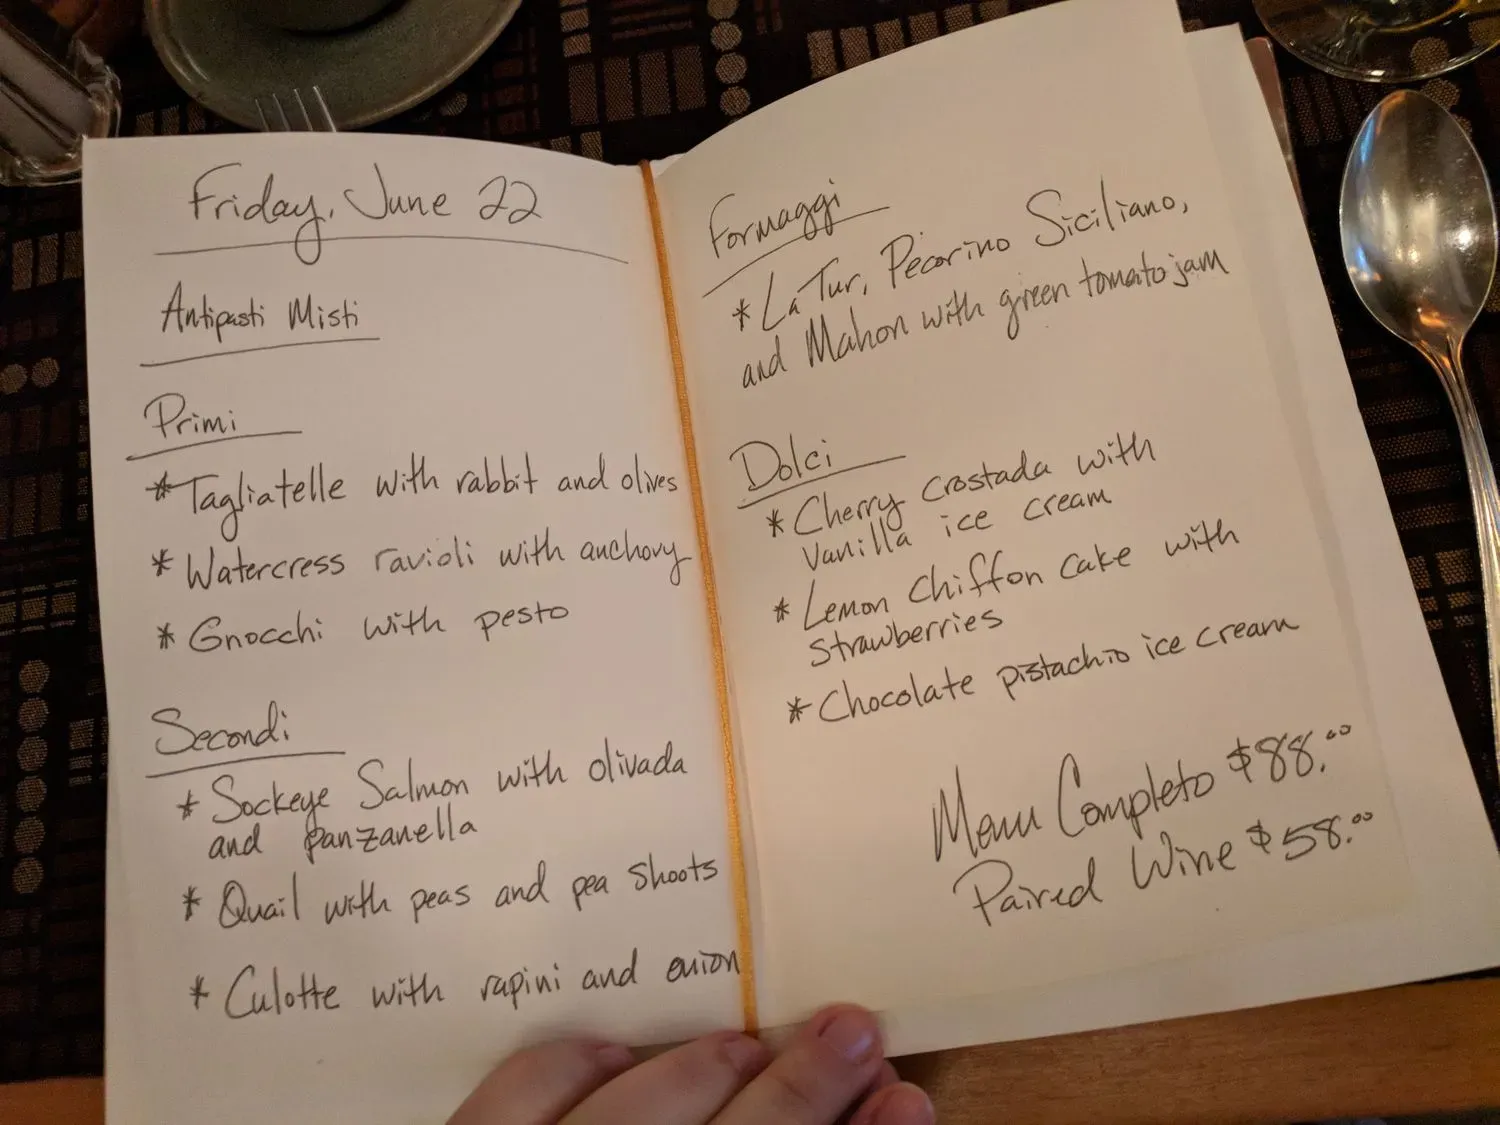 Friday, June 22
Antipasti Misti
Primi
* Tagliatelle with rabbit and olives
* Watercress ravioli with anchovy
* Gnocchi with pesto
Secondi
* Sockeye Salmon with olivada
and panzanella
* Quail with peas and pea shoots
* Culotte with rapini and onion
Formaggi
* La Tur, Pecorino Siciliano,
and Mahon with green tomato jam
Dolci
* Cherry crostada with
vanilla ice cream
* Lemon Chiffon cake with
strawberries
* Chocolate pistachio ice cream
Menu Completo $88.00
Paired Wine $58.00